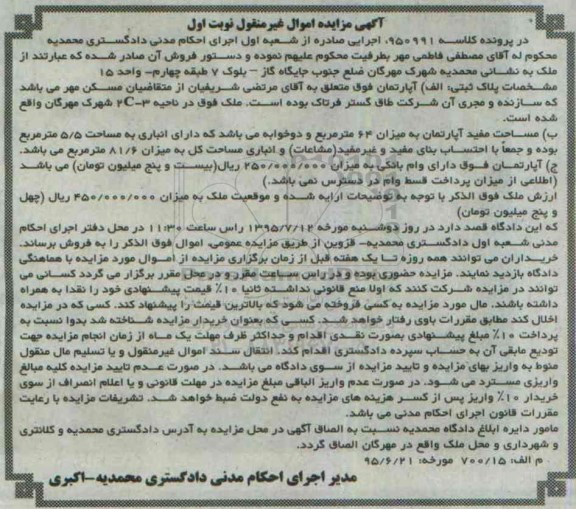 آگهی مزایده اموال غیرمنقول نوبت اول
در پرونده کلاسه ۹۵۰۹۹۱، اجرایی صادره از شعبه اول اجرای احکام مدنی دادگستری محمدیه
محکوم له آقای مصطفی فاطمی مهر بطرفیت محکوم علیهم نموده و دستور فروش آن صادر شده که عبارتند از
ملک به نشانی محمدیه شهرک مهرگان ضلع جنوب جایگاه گاز – بلوک ۷ طبقه چهارم- واحد ۱۵
مشخصات پلاک ثبتی: الف) آپارتمان فوق متعلق به آقای مرتضی شریفیان از متقاضیان مسکن مهر می باشد
که سازنده و مجری آن شرکت طاق گستر فرتاک بوده است. ملک فوق در ناحیه ۳-2C شهرک مهرگان واقع
شده است.
ب) مساحت مفید آپارتمان به میزان ۶۴ مترمربع و دوخوابه می باشد که دارای انباری به مساحت ۵/۵ مترمربع
بوده و جمعاً با احتساب بنای مفید و غیرمفید(مشاعات) و انباری مساحت کل به میزان ۸۱/۶ مترمربع می باشد.
ج) آپارتمان فوق دارای وام بانکی به میزان ۲۵۰/۰۰۰/۰۰۰ ریال(بیست و پنج میلیون تومان) می باشد
(اطلاعی از میزان پرداخت قسط وام در دسترس نمی باشد.)
ارزش ملک فوق الذکر با توجه به توضیحات ارایه شده و موقعیت ملک به میزان ۴۵۰/۰۰۰/۰۰۰ ریال (چهل
و پنج میلیون تومان)
که این دادگاه قصد دارد در روز دوشنبه مورخه ۱۳۹۵/۷/۱۲ راس ساعت ۱۱:۳۰ در محل دفتر اجرای احکام
مدنی شعبه اول دادگستری محمدیه- قزوین از طریق مزایده عمومی، اموال فوق الذکر را به فروش برساند.
خریداران می توانند همه روزه تا یک هفته قبل از زمان برگزاری مزایده از اموال مورد مزایده با هماهنگی
دادگاه بازدید نمایند. مزایده حضوری بوده و در راس ساعت مقرر و در محل مقرر برگزار می گردد کسانی می
توانند در مزایده شرکت کنند که اولا منع قانونی نداشته ثانیا ۱۰٪ قیمت پیشنهادی خود را نقدا به همراه
داشته باشند. مال مورد مزایده به کسی فروخته می شود که بالاترین قیمت را پیشنهاد کند. کسی که در مزایده
اخلال کند مطابق مقررات باوی رفتار خواهد شد. کسی که بعنوان خریدار مزایده شناخته شد بدوا نسبت به
پرداخت ۱۰٪ مبلغ پیشنهادی بصورت نقدی اقدام و حداکثر ظرف مهلت یک ماه از زمان انجام مزایده جهت
تودیع مابقی آن به حساب سپرده دادگستری اقدام کند. انتقال سند اموال غیرمنقول و یا تسلیم مال منقول
منوط به واریز بهای مزایده و تایید مزایده از سوی دادگاه می باشد. در صورت عدم تایید مزایده کلیه مبالغ
واریزی مسترد می شود. در صورت عدم واریز الباقی مبلغ مزایده در مهلت قانونی و یا اعلام انصراف از سوی
خریدار ۱۰٪ واریز پس از کسر هزینه های مزایده به نفع دولت ضبط خواهد شد. تشریفات مزایده با رعایت
مقررات قانون اجرای احکام مدنی می باشد.
مامور دایره ابلاغ دادگاه محمدیه نسبت به الصاق آگهی در محل مزایده به آدرس دادگستری محمدیه و کلانتری
و شهرداری و محل ملک واقع در مهرگان الصاق گردد.
م الف: ۷۰۰/۱۵ مورخه: ۹۵/۶/۲۱
مدیر اجرای احکام مدنی دادگستری محمدیه-اکبری